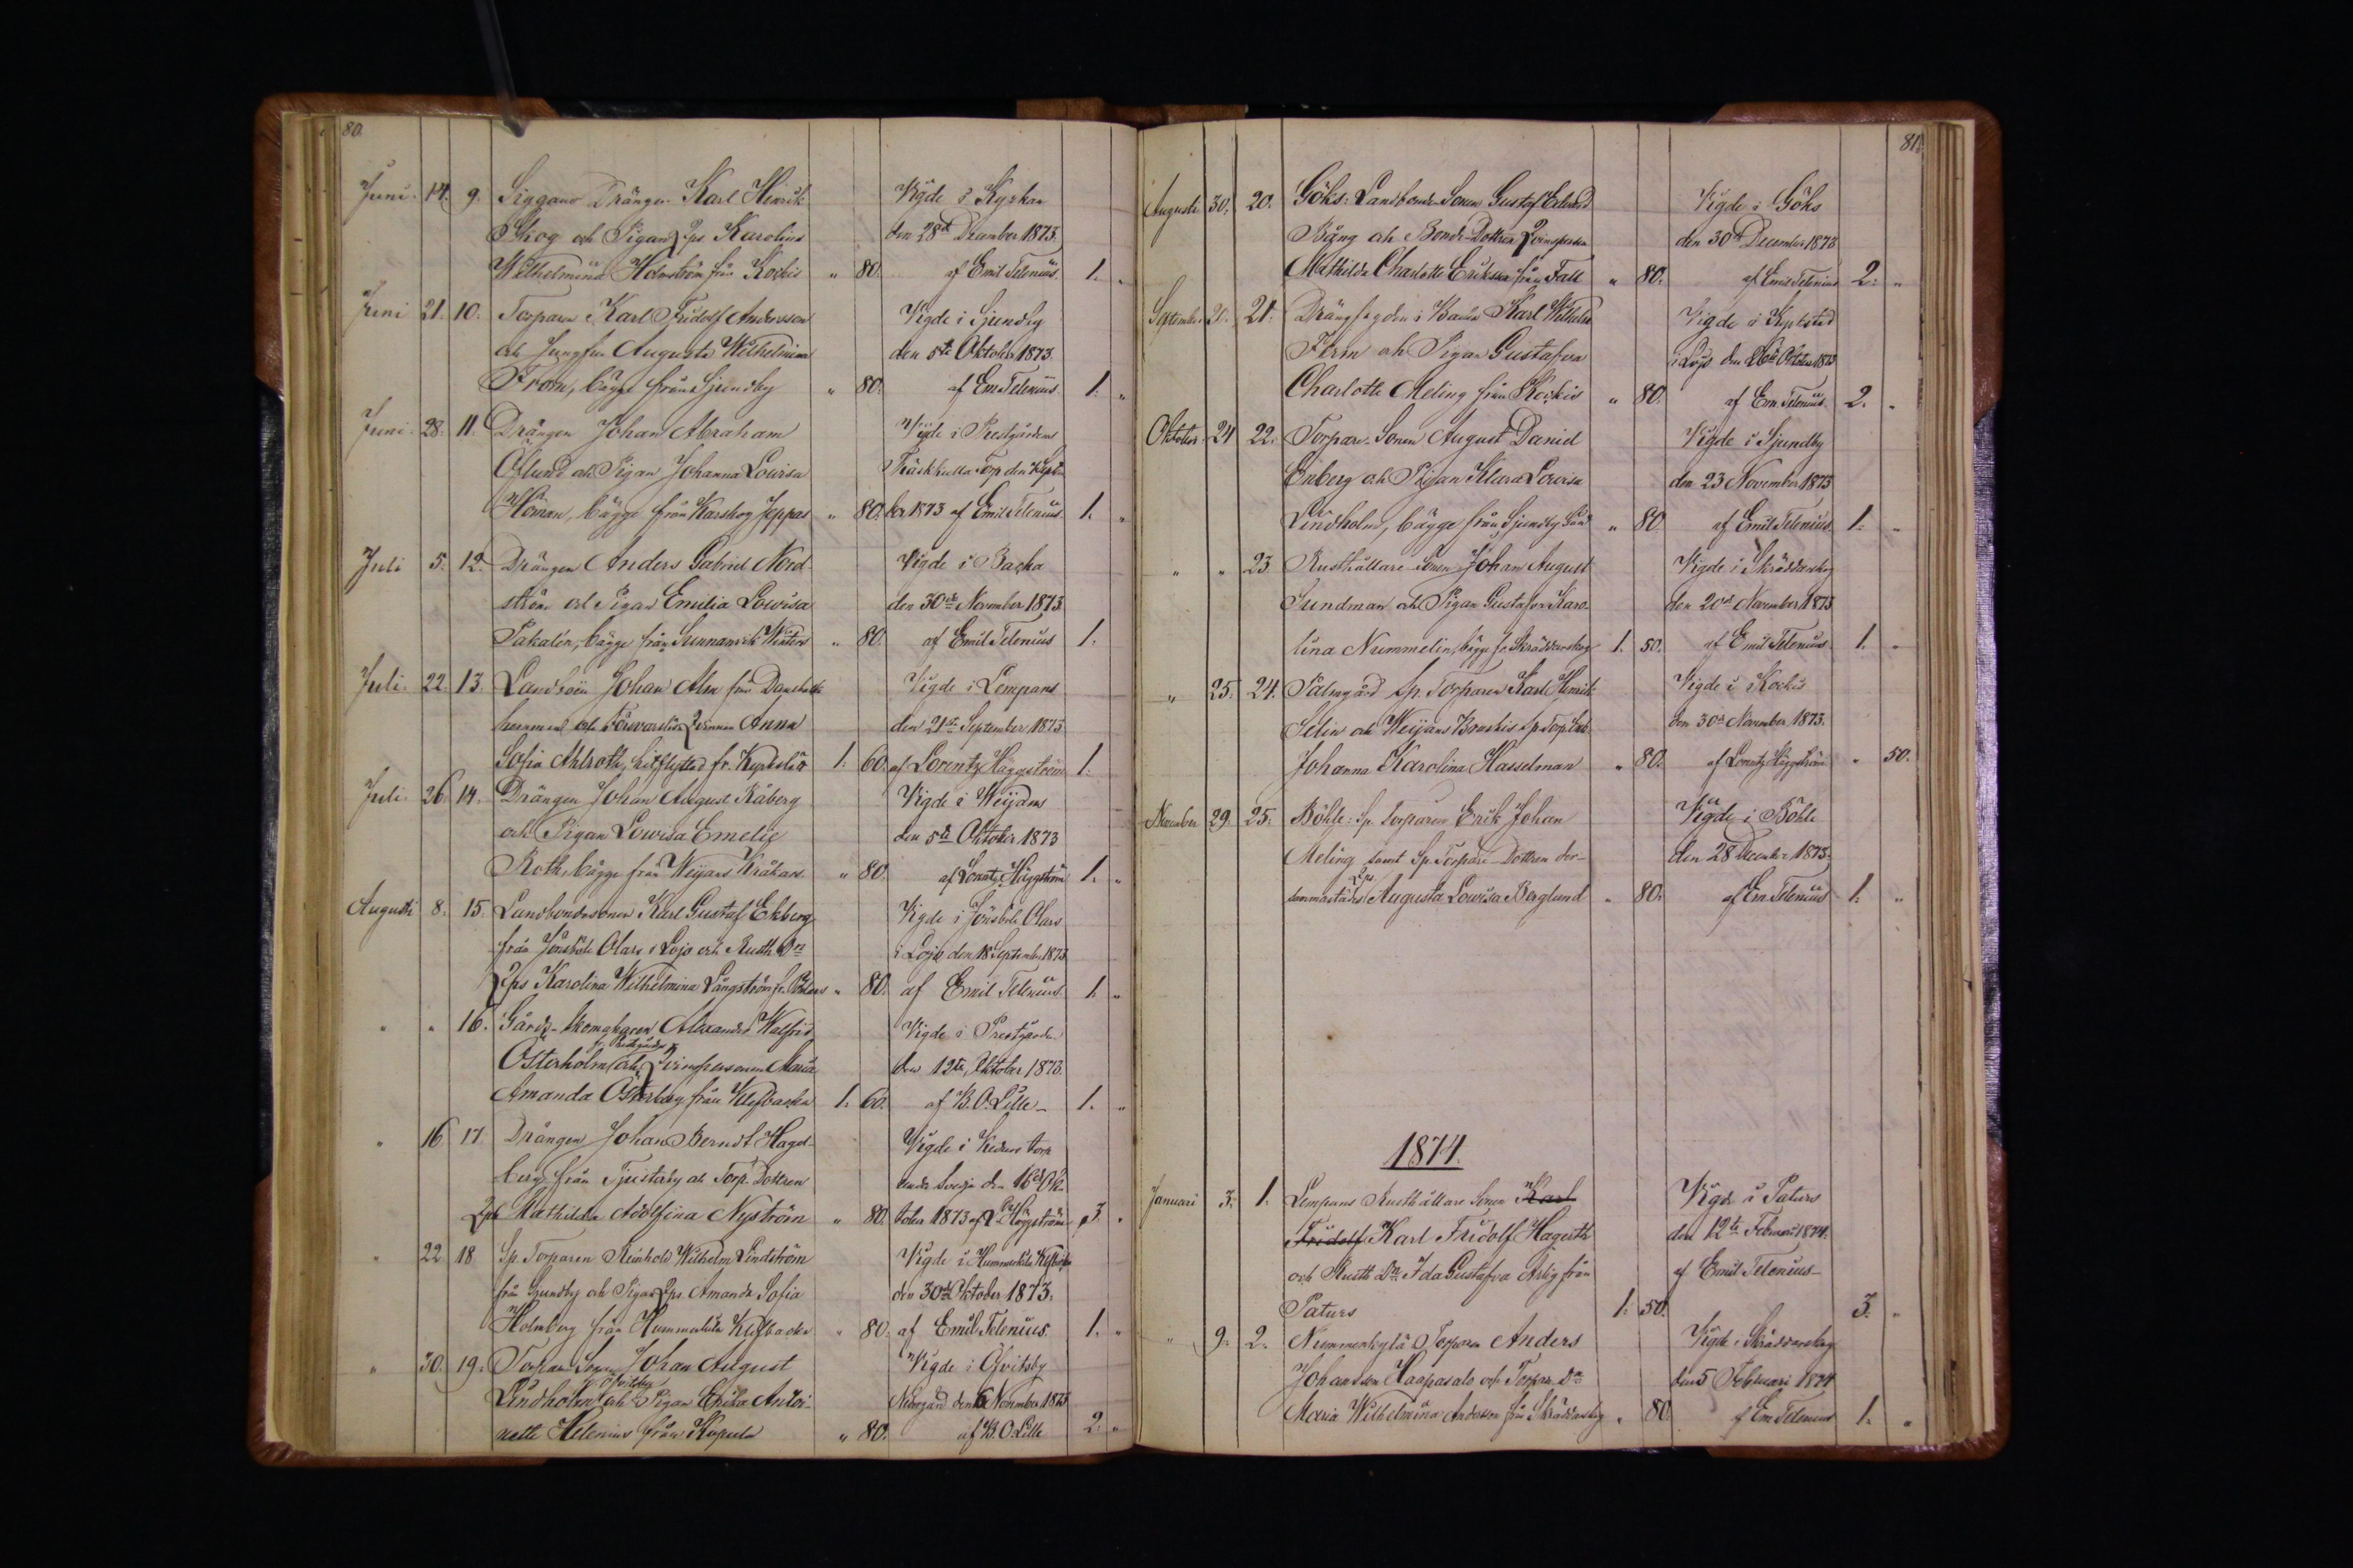 80.
Juni. 14. 9. Siggans Drängen Karl Henrik Vigde i Kyrkan
Skog och Pigan Qps Karolina den 28de December 1873.
Wilhelmina Holmström från Kockis " 80. af Emil Telenius. 1. "
Juni 21. 10. Torparen Karl Fridolf Andersson Vigde i Sjundby
och Jungfru Augusta Wilhelmina den 5te Oktober 1873.
From, bägge från Sjundby " 80. af Em. Telenius 1. "
Juni. 28. 11. Drängen Johan Abraham Vigde i Prestgårdens
Öflund och Pigan Johanna Lovisa Träskkulla Torp den Septem
Höman, bägge från Karskog Jeppas " 80. ber 1873 af Emil Telenius 1. "
Juli 5. 12. Drängen Anders Gabriel Nord- Vigde i Backa
ström och Pigan Emilia Lowisa den 30de November 1873.
Sakalén, bägge från Sunnanvik " 80. af Emil Telenius 1.
Juli. 22. 13. Johan Alm från Vigde i Lempans
och Qvinnan Anna den 21sta September 1873
Sofia Ahlroth, hitflyttad fr. Kyrkslätt 1. 60. af Lorentz Häggström 1.
Juli. 26. 14. Drängen Johan August Råberg Vigde i Weijans
och Pigan Lowisa Emelie den 5te Oktober 1873
Roth, bägge från Weijans Kråkars " 80. af Lorentz Häggström 1. "
Augusti 8. 15. Landbondesonen Karl Gustaf Ekberg Vigde i Jönsböle Olars
från Jönsböle Olars i Lojo och Rusth. Dn i Lojo den 18 September 1873
Qps Karolina Wilhelmina Långström fr. " 80. af Emil Telenius 1. "
" " 16. Gårds-skomakaren Alexander Walfrid Vigde i Prestgården
fr. Prestgården
Österholm och Qvinspersonen Maria den 12te Oktober 1873.
Amanda Österberg från Klefbacka 1. 60. af B. O. Lille 1. "
" 16 17. Drängen Johan Berndt Hagel- Vigde i torp
berg från Tjusterby och Torp. Dottren den 16de Ok-
Qps Mathilda Adolfina Nyström " 80. tober 1873 af Häggström 3. "
" 22 18 Sp. Torparen Reinhold Wilhelm Lindström Vigde i Hummerkila Klefbacka
från Sjundby och Pigan Qps Amanda Sofia den 30de Oktober 1873.
Holmberg från Hummerkila Klefbacka " 80. af Emil Telenius. 1. "
" 30. 19. Torpare Sonen Johan August Vigde i Ofvitsby
Ofvitsby
Lindholm och Pigan Erika Antoi- Nedergård den 6 November 1873
nette Helenius från Kopula " 80. af B. O. Lille 2. "
81.
Augusti 30. 20. Göks: Landbonde Sonen Gustaf Erland Vigde i Göks
Bäng och Bonde-Dottren Qvinspersen den 30de December 1873
Mathilda Charlotta Eriksson från Fall " 80. af Emil Telenius 2. "
September 21. Drängfogden i Backa Karl Wilhelm Vigde i
Ferm och Pigan Gustafva i Lojo den 26te Oktober 1873
Charlotta Meling från Kockis " 80. af Em. Telenius. 2. "
Oktober 24 22. Torpare-Sonen August Daniel Vigde i Sjundby
Enberg och Pigan Klara Lovisa den 23 November 1873
Lindholm, bägge från Sjundby Gård " 80 af Emil Telenius 1. "
" " 23. Rusthållare-sonen Johan August Vigde i Skräddarskog
Sundman och Pigan Gustafva Karo- den 20de November 1873
lina Nummelin, bägge fr. Skräddarskog 1. 50. af Emil Telenius 1. "
" 25. 24. Palmgård Sp. Torparen Karl Henrik Vigde i Kockis
Selin och Weijans Sp. Torp. den 30de November 1873.
Johanna Karolina Hasselman " 80. af Lorentz Häggström " 50.
November 29. 25. Böhle: Sp. torparen Erik Johan Vigde i Böhle
Meling samt Sp. Torpare-Dottren der- den 28 December 1873.
Qps
sammastädes Augusta Lowisa Berglund " 80. af Em. Telenius 1. "
1874.
Januari 3. 1. Lempans Rusthållare Sonen Karl Vigde i Paturs
Fridolf Karl Fridolf Hagerth den 12te Februari 1874.
och Rusth. Dn. Ida Gustafva Arlig från af Emil Telenius
Paturs 1. 50. 3. "
" 9. 2. Nummenkylä Torparen Anders Vigde i Skräddarskog
Johansson Haapasalo och Torpare Dn den 5 Februari 1874
Maria Wilhelmina Andersson från Skräddarskog " 80 af Em. Telenius 1. "